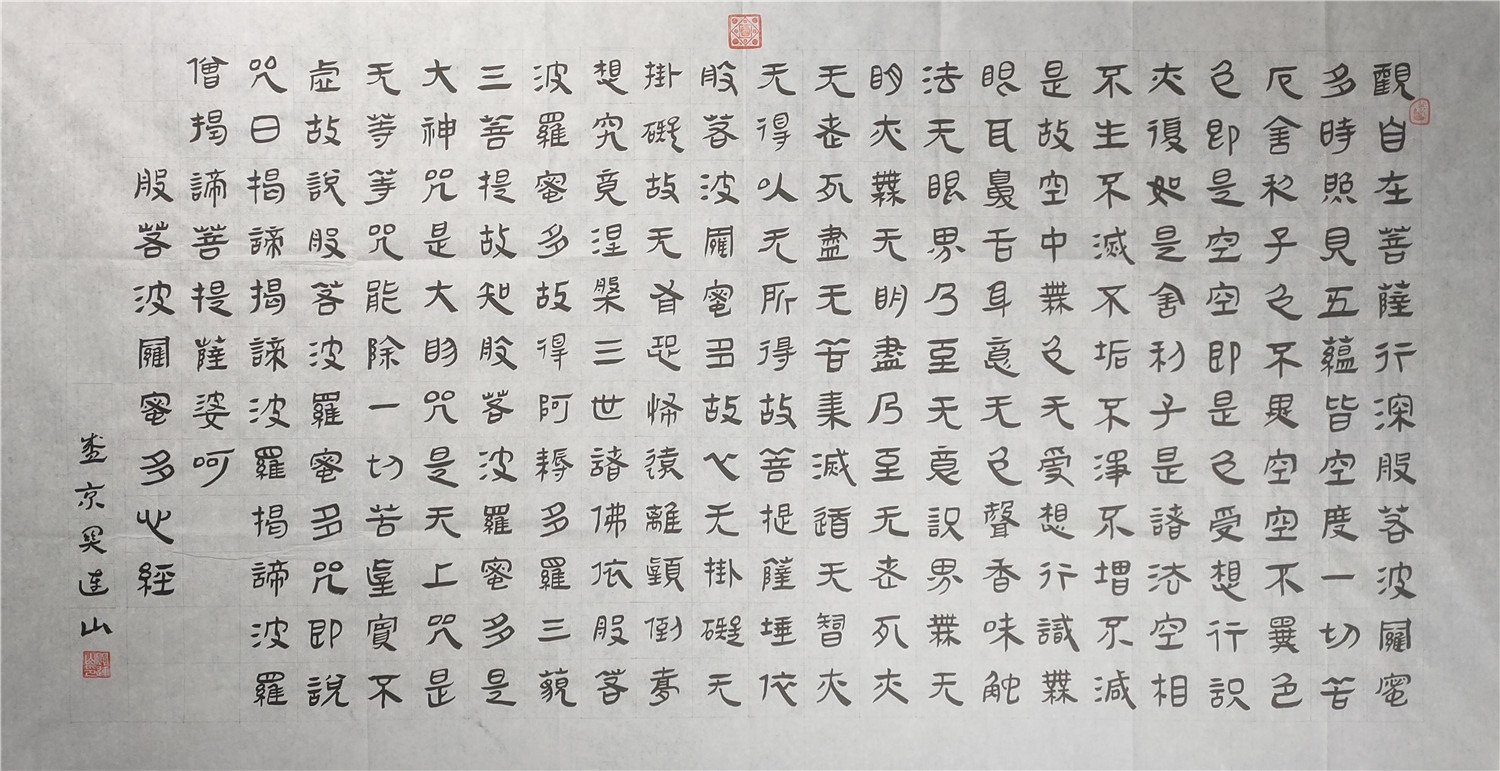 觀自在菩薩行深般若波羅蜜
多時照見五蘊皆空度一切苦
厄舍利子色不異空空不異色
色即是空空即是色受想行識
亦復如是舍利子是諸法空相
不生不滅不垢不淨不增不減
是故空中無色无受想行識無
眼耳鼻舌身意无色聲香味触
法无眼界乃至无意識界無无
明亦無无明盡乃至无老死亦
无老死盡无苦集滅道无智亦
无得以无所得故菩提薩埵依
般若波羅蜜多故心无掛礙无
掛礙故无有恐怖遠離顛倒夢
想究竟涅槃三世諸佛依般若
波羅蜜多故得阿耨多羅三藐
三菩提故知般若波羅蜜多是
大神咒是大明咒是无上咒是
无等等咒能除一切苦真實不
虛故說般若波羅蜜多咒即說
咒曰揭諦揭諦波羅揭諦波羅
僧揭諦菩提薩婆呵
般若波羅蜜多心經
盛京吳連山